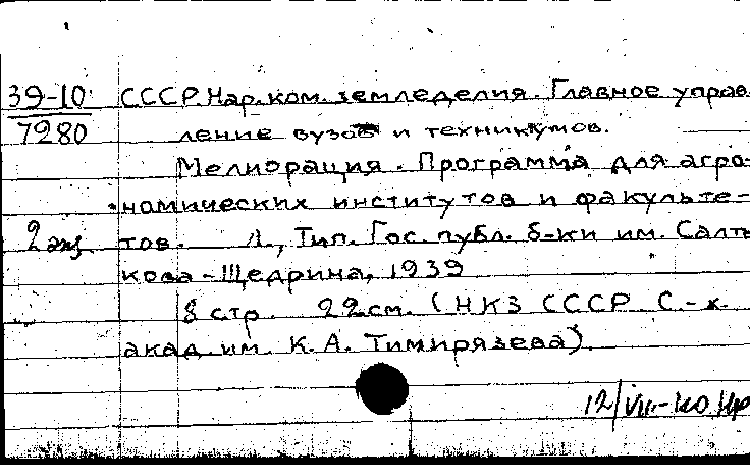 39-10 СССР. Нар. ком. земледелия. Главное управ
7280 ление вузов и техникумов.
Мелиорация. Программа для агро-
номических институтов и факульте-
2 экз. тов. Л., Тип. Гос. публ. б-ки им. Салты
кова-Щедрина, 1939
8 стр. 22 см. (НКЗ СССР С.-х.
акад. им. К. А. Тимирязева).
12/VII-40